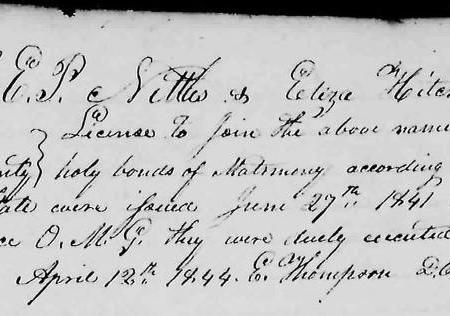 E. P. Nettles & Eliza Hitch
License to Join the above name
nty } holy bonds of Matrimony according
tate were issued June 27th 1841
ce O. M. G. they were duly executed
April 12th 1844. E. Thompson D. C